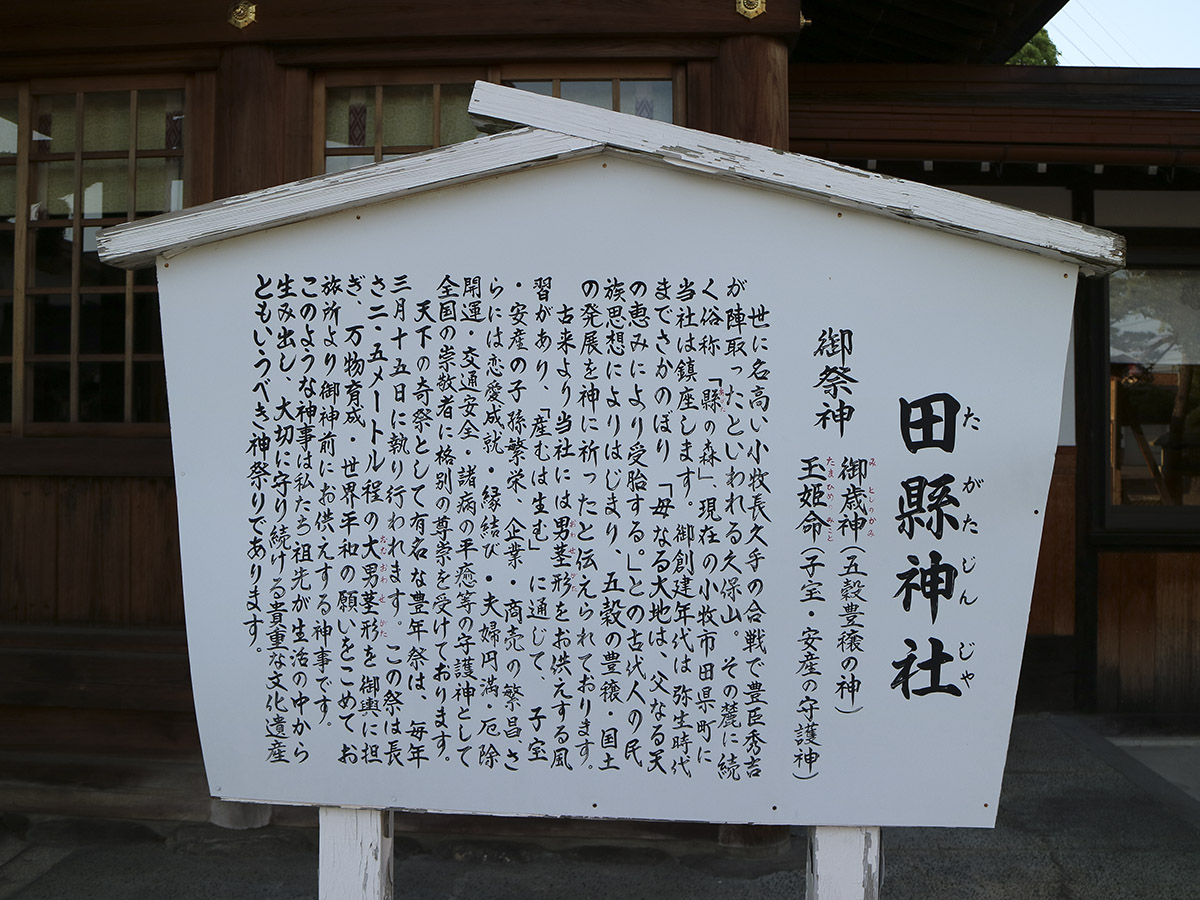 田縣神社
たがたじんじゃ
御祭神
御歳神(五穀豊穣の神)
みとしのかみ
玉姫命(子宝・安産の守護神)
たまひめのみこと
世に名高い小牧長久手の合戦で豊臣秀吉
が陣取ったといわれる久保山。その麓に続
く俗称「縣の森」現在の小牧市田県町に
当社は鎮座します。御創建年代は弥生時代
までさかのぼり「母なる大地は、父なる天
の恵みにより受胎する。」との古代人の民
族思想によりはじまり、五穀の豊穣・国土
の発展を神に祈ったと伝えられております。
古来より当社には男茎形をお供えする風
習があり、「産むは生む」に通じて、子宝
・安産の子孫繁栄、企業・商売の繁昌さ
らには恋愛成就・縁結び・夫婦円満・厄除
開運・交通安全・諸病の平癒等の守護神として
全国の崇敬者に格別の尊崇を受けております。
天下の奇祭として有名な豊年祭は、毎年
三月十五日に執り行われます。この祭は長
さ二・五メートル程の大男茎形を御輿に担
ぎ、万物育成・世界平和の願いをこめてお
旅所より御神前にお供えする神事です。
このような神事は私たち祖先が生活の中から
生み出し、大切に守り続ける貴重な文化遺産
ともいうべき神祭りであります。